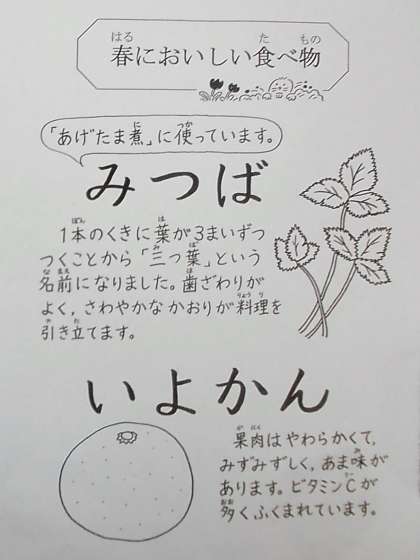 春においしい食べ物
「あげたま煮」に使っています。
みつば
1本のくきに葉が3まいずつ
つくことから「三つ葉」という
名前になりました。歯ざわりが
よく，さわやかなかおりが料理を
引き立てます。
いよかん
果肉はやわらかくて，
みずみずしく，あま味が
あります。ビタミンCが
多くふくまれています。